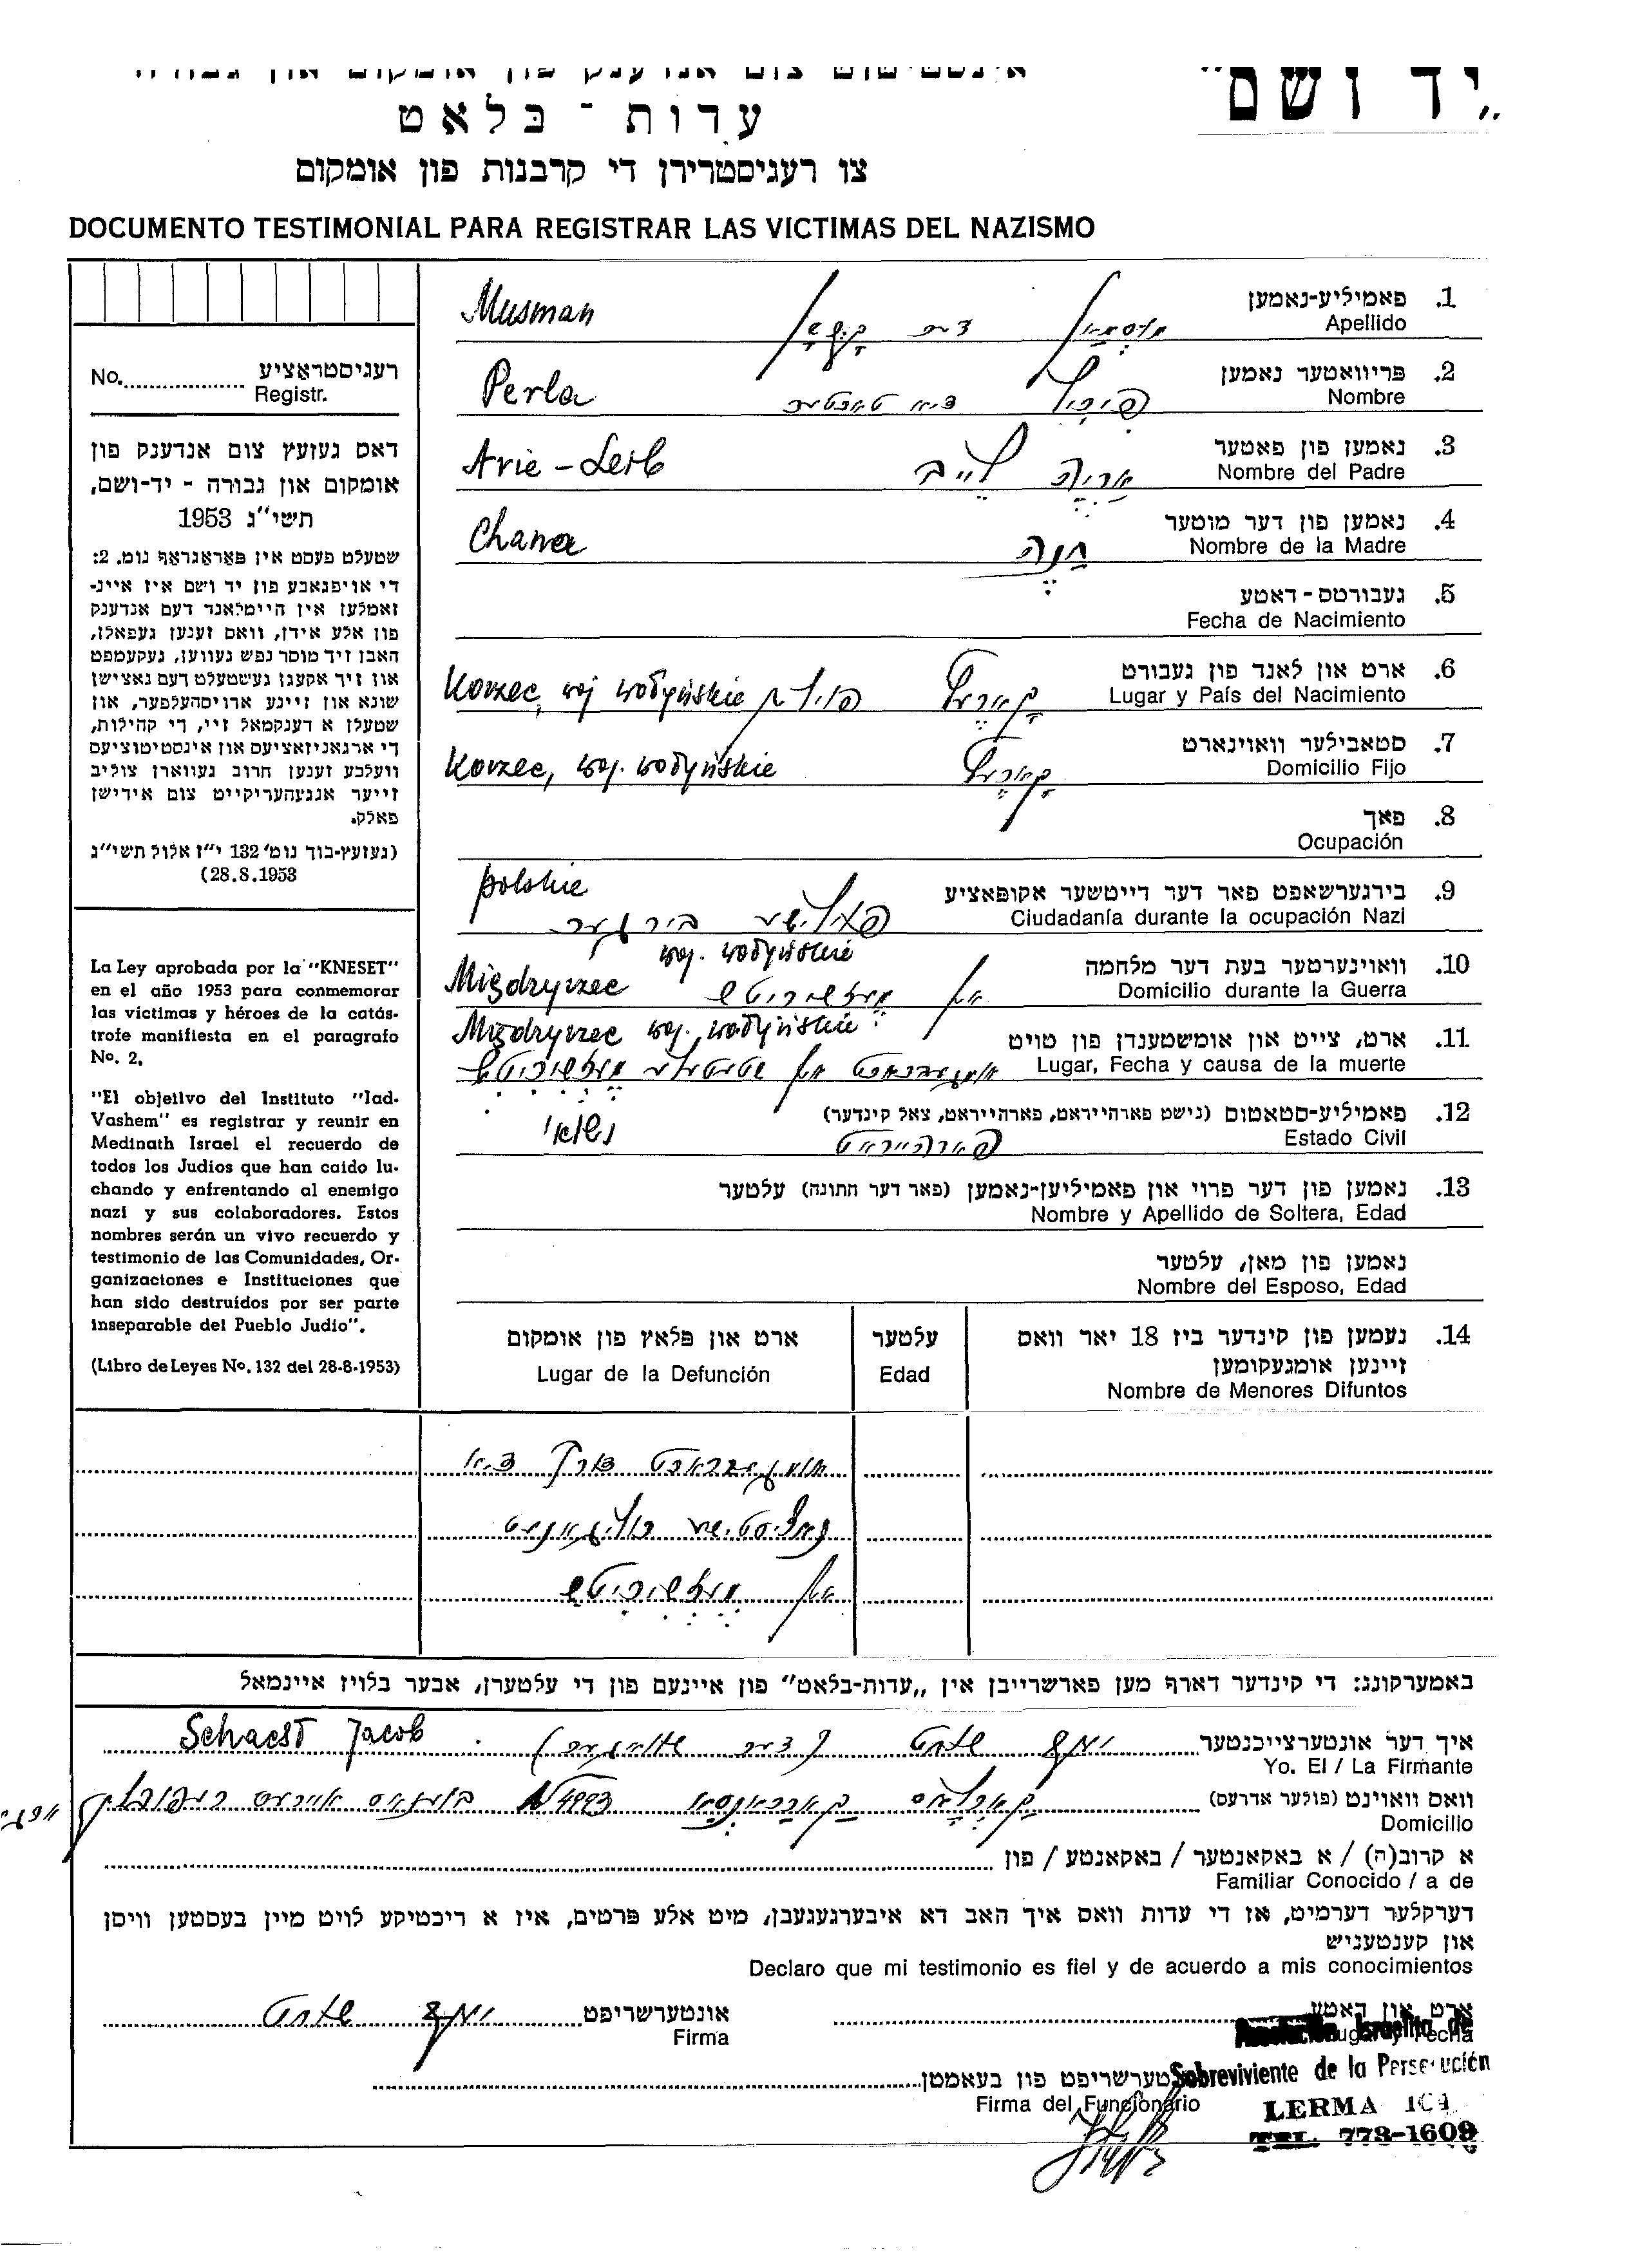 „יד ושם"
עדות - בלאט
צו רעגיסטרירן די קרבנות פון אומקום
DOCUMENTO TESTIMONIAL PARA REGISTRAR LAS VICTIMAS DEL NAZISMO
רעגיסטראציע
No. Registr.
דאס געזעץ צום אנדענק פון
אומקום און גבורה - יד-ושם,
תשי"ג 1953
שטעלט פעסט אין פאראגראף נומ. 2:
די אויפגאבע פון יד ושם איז איינ-
זאמלען אין היימלאנד דעם אנדענק
פון אלע אידן, וואס זענען געפאלן,
האבן זיך מוסר נפש געווען, געקעמפט
און זיך אקעגן געשטעלט דעם נאצישן
שונא און זיינע ארויסהעלפער, און
שטעלן א דענקמאל זיי, די קהילות,
די ארגאניזאציעס און אינסטיטוציעס
וועלכע זענען חרוב געווארן צוליב
זייער אנגעהעריקייט צום אידישן
פאלק.
(געזעץ-בוך נומ' 132 י"ז אלול תשי"ג
28.8.1953)
La Ley aprobada por la "KNESET"
en el año 1953 para conmemorar
las víctimas y héroes de la catás-
trofe manifiesta en el paragrafo
No. 2.
"El objetivo del Instituto "Iad-
Vashem" es registrar y reunir en
Medinath Israel el recuerdo de
todos los Judios que han caido lu-
chando y enfrentando al enemigo
nazi y sus colaboradores. Estos
nombres serán un vivo recuerdo y
testimonio de las Comunidades, Or-
ganizaciones e Instituciones que
han sido destruídos por ser parte
inseparable del Pueblo Judio".
(Libro de Leyes No. 132 del 28-8-1953)
1. פאמיליע-נאמען
Apellido
Musman
2. פריוואטער נאמען
Nombre
Perla
3. נאמען פון פאטער
Nombre del Padre
אריה לייב Arie - Leib
4. נאמען פון דער מוטער
Nombre de la Madre
חנה Chana
5. געבורטס - דאטע
Fecha de Nacimiento
6. ארט און לאנד פון געבורט
Lugar y País del Nacimiento
קארעץ פוילן Korzec, woj wołyńskie
7. סטאבילער וואוינארט
Domicilio Fijo
קארעץ Korzec, woj. wołyńskie
8. פאך
Ocupación
9. בירגערשאפט פאר דער דייטשער אקופאציע
Ciudadanía durante la ocupación Nazi
polskie
פוילישע בירגער
10. וואוינערטער בעת דער מלחמה
Domicilio durante la Guerra
woj. wołyńskie
Międzyrzec אין מעזשריטש
11. ארט, צייט און אומשטענדן פון טויט
Lugar, Fecha y causa de la muerte
Międzyrzec woj. wołyńskie
אומגעבראכט אין שטעטל מעזשריטש
12. פאמיליע-סטאטוס (נישט פארהייראט, פארהייראט, צאל קינדער)
Estado Civil
פארהייראט נשואי
13. נאמען פון דער פרוי און פאמיליען-נאמען (פאר דער חתונה) עלטער
Nombre y Apellido de Soltera, Edad
נאמען פון מאן, עלטער
Nombre del Esposo, Edad
14. נעמען פון קינדער ביז 18 יאר וואס
זיינען אומגעקומען
Nombre de Menores Difuntos
עלטער
Edad
ארט און פלאץ פון אומקום
Lugar de la Defunción
אומגעבראכט דורך די
אין מעזשריטש
באמערקונג: די קינדער דארף מען פארשרייבן אין „עדות-בלאט" פון איינעם פון די עלטערן, אבער בלויז איינמאל
איך דער אונטערצייכנטער
Yo. El / La Firmante
יעקב שעכט Schaest Jacob
וואס וואוינט (פולער אדרעס)
Domicilio
4993 N בוענאס איירעס
א קרוב(ה) / א באקאנטער / באקאנטע / פון
Familiar Conocido / a de
דערקלער דערמיט, אז די עדות וואס איך האב דא איבערגעגעבן, מיט אלע פרטים, איז א ריכטיקע לויט מיין בעסטען וויסן
און קענטעניש
Declaro que mi testimonio es fiel y de acuerdo a mis conocimientos
ארט און דאטע
אונטערשריפט
Firma
יעקב שעכט
Israelita de
Sobreviviente de la Persecución
Firma del Funcionario
LERMA
TEL. 773-1609